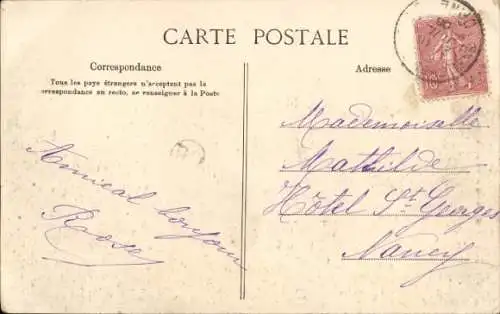 CARTE POSTALE
Correspondance
Tous les pays étrangers n'acceptent pas la
correspondance au recto, se renseigner à la Poste
Amical bonjour
Rosa
Adresse
Mademoiselle
Mathilde
Hôtel St Georges
Nancy